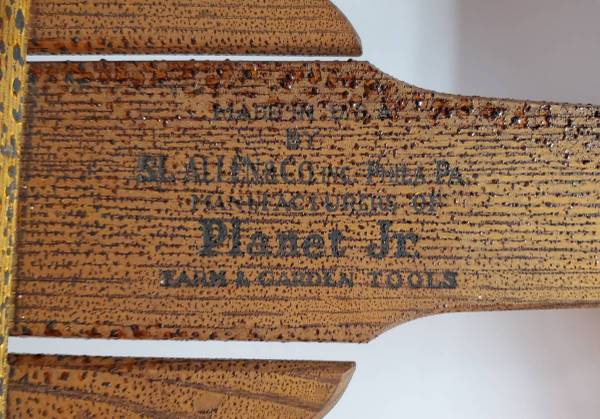 MADE IN U.S.A.
BY
S.L. ALLEN & CO. INC. PHILA. PA.
MANUFACTURERS OF
Planet Jr.
FARM & GARDEN TOOLS